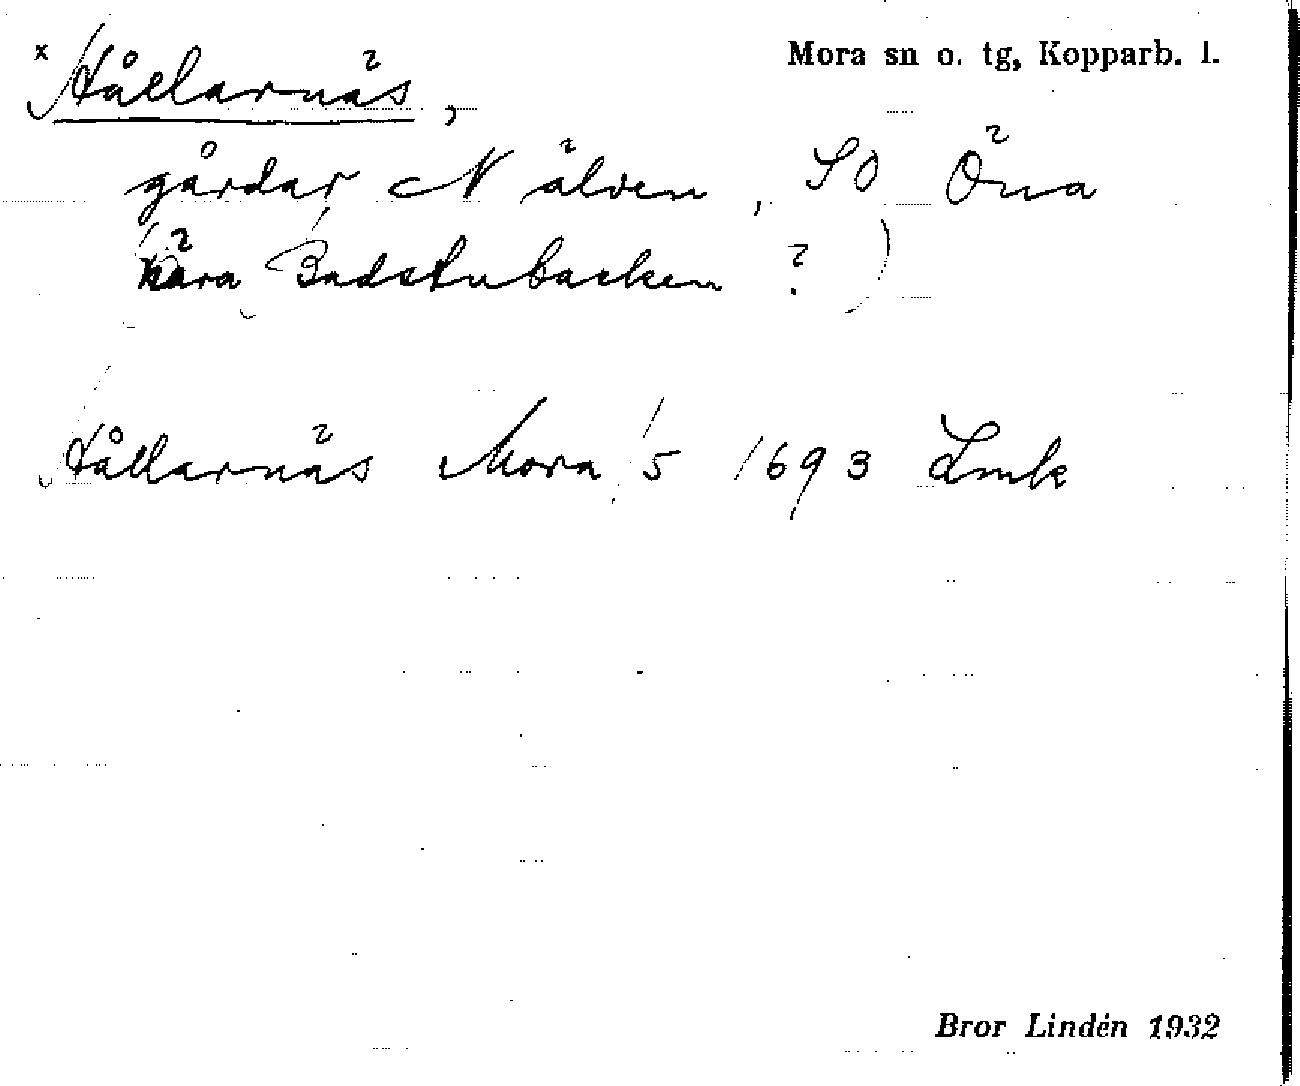 x Hållarnäs,
Mora sn o. tg, Kopparb. l.
gårdar N älven, SO Öna
(nära Badstubacken?)
Hållarnäs Mora 5 1693 Lmk
Bror Lindén 1932